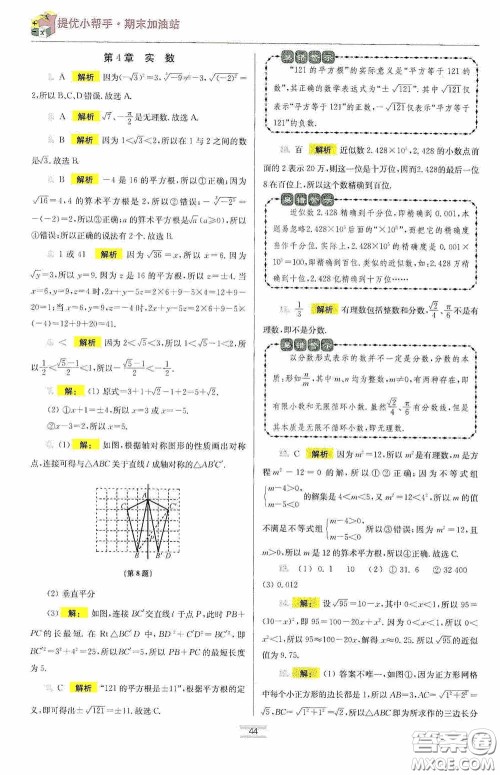 提优小帮手·期末加油站
第4章 实 数
A 解析 因为(-√3)²=3,∛-9≠-3,√(-2)²=
2,所以B、C、D错误.故选A.
A 解析 √7、-π/2是无理数.故选A.
B 解析 因为1<√3<2,所以在1与2之间的数
是√3.故选B.
B 解析 -4是16的平方根,所以①正确;因为
√16=4,4的算术平方根是2,所以②错误;-∛-2³=
-(-2)=2,所以③正确;a的算术平方根是√a(a≥0),所以
④错误.所以正确的说法有2个.故选B.
1或41 解析 因为√36=x,所以x=6.因为
√y=3,所以y=9.因为z是16的平方根,所以z=±4.当
x=6,y=9,z=4时,2x+y-5z=2×6+9-5×4=12+9-
20=1;当x=6,y=9,z=-4时,2x+y-5z=2×6+9-5×
(-4)=12+9+20=41.
< 解析 因为2<√5<3,所以1<√5-1<2,所
以1/2<(√5-1)/2<1,所以-1<-(√5-1)/2<-1/2.
解:(1) 原式=3+1+√2-1-2=1+√2.
(2) ①x+1=±4,所以x=3或x=-5.
②x-2=-1,所以x=1.
(1) 解:如图,根据轴对称图形的性质画出对称
点,连接可得与△ABC关于直线l成轴对称的△AB′C′.
A
B
C
(第8题)
(2) 垂直平分
(3) 解:如图,连接BC′交直线l于点P,此时PB+
PC的长最短.在Rt△BC′D中,BD²+C′D²=BC′²,即
BC′²=3²+4²=25,所以BC′=5,所以PB+PC的最短长度
为5.
C 解析 “121的平方根是±11”,根据平方根的定
义,即可得出±√121=±11.故选C.
易错警示
“121的平方根”的实际意义是“平方等于121的
数”,其正确的数学表达式为“±√121”.其中√121仅
表示“平方等于121”的正数,-√121仅表示“平方等于
121”的负数.
百 解析 近似数2.428×10⁵,2.428的小数点前
面的2表示20万,则这一位是十万位,因而2.428的最后一位
8在百位上,所以这个数精确到百位.
易错警示
近似数2.428精确到千分位,即精确到0.001,本
题易忽略2.428×10⁵后面的“×10⁵”,而把它的精确度
当作千分位.实际上,2.428的精确度是0.001×
10⁵=100,即精确到百位.因此,2.428万精确
到十位,2.428亿精确到十万位……
1/3 解析 有理数包括整数和分数,√2/4、π/6不是有
理数,即不是分数.
易错警示
以分数形式表示的数并不一定是分数,分数的本
质是:形如n/m,其中m、n均为整数,m≠0,有两种存在,即
有限小数和无限循环小数.虽然√2/4、π/6有分数线,但
是是无限不循环小数,即无理数.
C 解析 因为m²=12,所以m是有理数,m是方
程m²-12=0的解,所以①②正确;因为不等式组
{m-4>0, m-5<0的解集是4<m<5,又m²=12<4²,所以m的值
不满足不等式组{m-4>0, m-5<0,所以③错误;因为m²=12,且
m>0,所以m是12的算术平方根,所以④正确.故选C.
(1) 10 0.1 (2) ①31.6 ②32400
(3) 0.012
解:设√95=10-x,其中0<x<1,所以95=
(10-x)²,即95=100-20x+x².因为0<x<1,所以0<
x²<1,所以95≈100-20x,解得x≈0.25,即√95的近似
值为9.75.
解:(1) 答案不唯一,如图,因为正方形网格
中每个小正方形的边长都是1,所以AB=3,AC=√1²+2²=
√5,BC=√1²+1²=√2,所以△ABC即为所求作的三边长分
44
答案圈
MXQE.COM